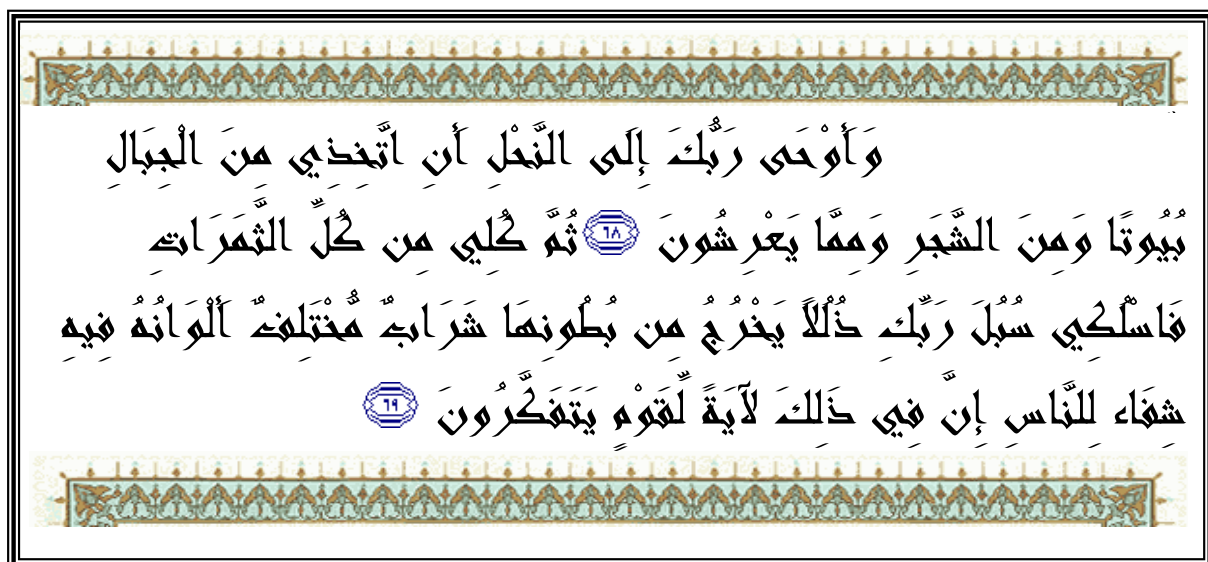 وَأَوْحَى رَبُّكَ إِلَى النَّحْلِ أَنِ اتَّخِذِي مِنَ الْجِبَالِ
بُيُوتًا وَمِنَ الشَّجَرِ وَمِمَّا يَعْرِشُونَ ٦٨ ثُمَّ كُلِي مِن كُلِّ الثَّمَرَاتِ
فَاسْلُكِي سُبُلَ رَبِّكِ ذُلُلاً يَخْرُجُ مِن بُطُونِهَا شَرَابٌ مُّخْتَلِفٌ أَلْوَانُهُ فِيهِ
شِفَاء لِلنَّاسِ إِنَّ فِي ذَلِكَ لَآيَةً لِّقَوْمٍ يَتَفَكَّرُونَ ٦٩